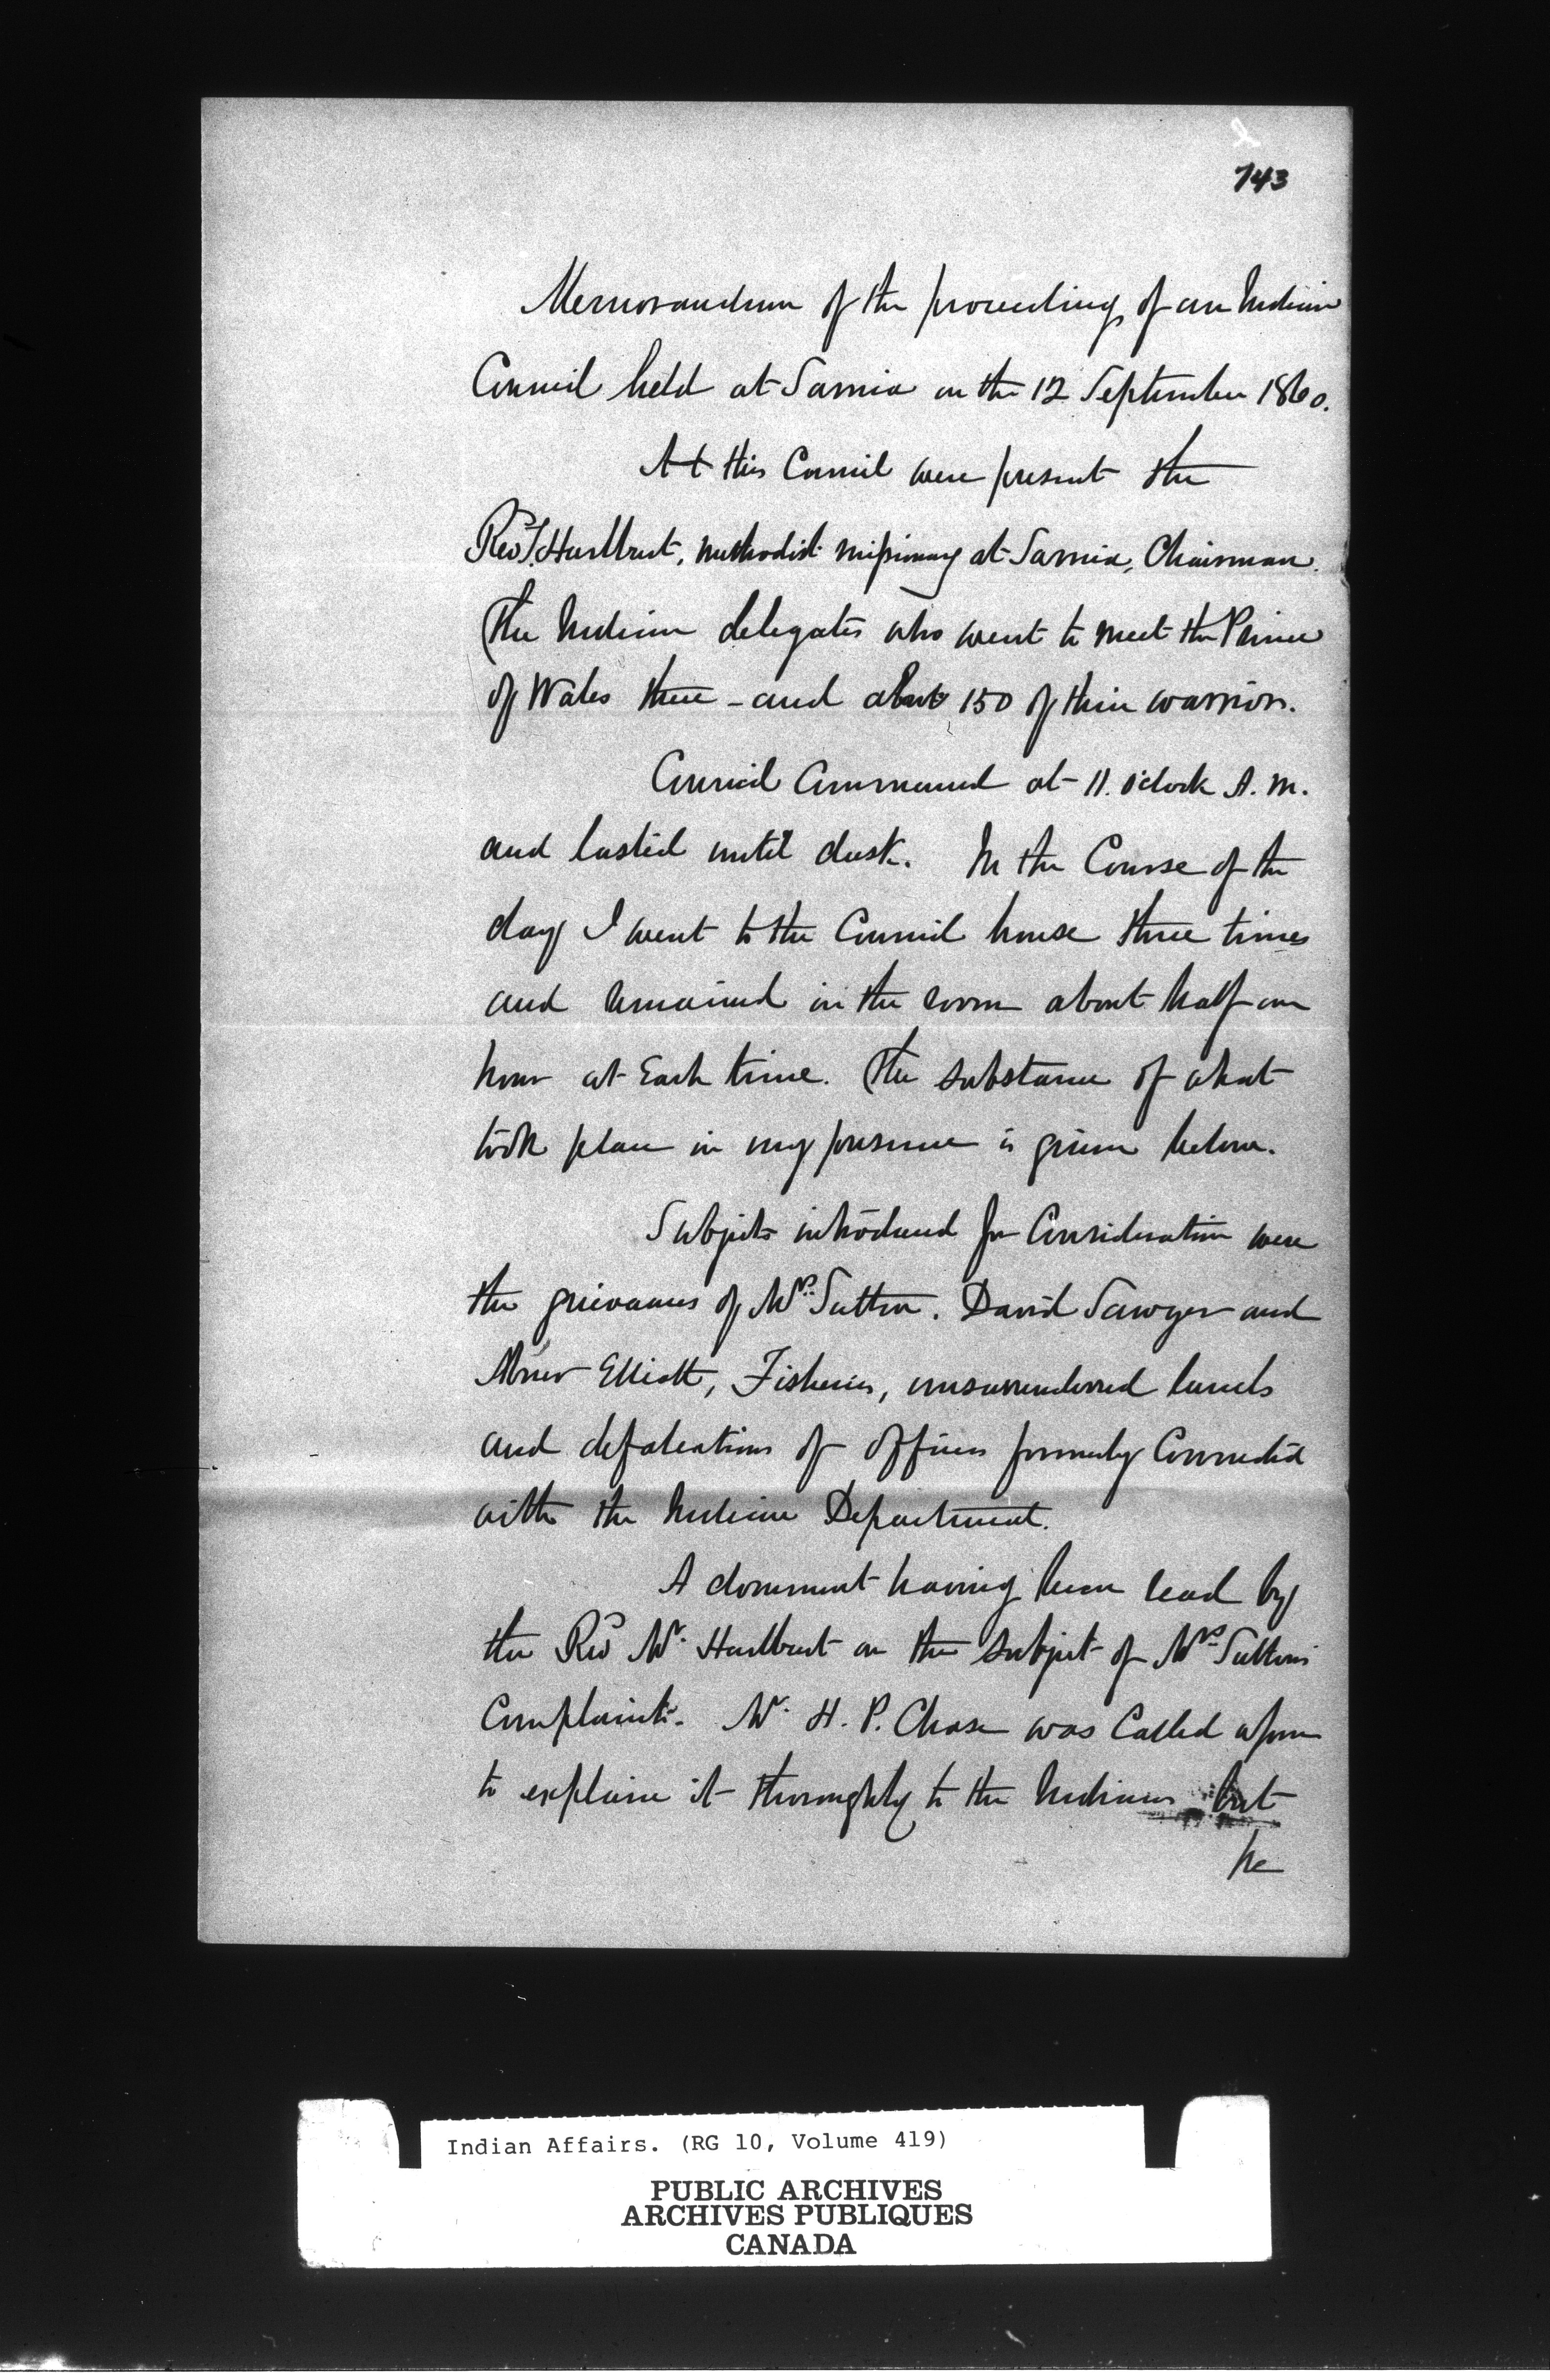 743
Memorandum of the proceedings of an Indian
Council held at Sarnia on the 12 September 1860.
At this Council were present the
Revd T. Hurlburt, Methodist Missionary at Sarnia, Chairman.
The Indian delegates who went to meet the Prince
of Wales there - and about 150 of their warriors.
Council Commenced at 11. o'clock A. M.
and lasted until dusk. In the Course of the
day I went to the Council house three times
and remained in the room about half an
hour at Each time. The substance of what
took place in my presence is given below.
Subjects introduced for Consideration were
the grievances of Mrs. Sutton. David Sawyer and
Abner Elliott, Fisheries, unsurrendered lands
and defalcations of officers formerly Connected
with the Indian Department.
A document having been read by
the Revd Mr. Hurlburt on the subject of Mrs Sutton's
Complaints. Mr. H. P. Chase was Called upon
to explain it thoroughly to the Indians but
he
Indian Affairs. (RG 10, Volume 419)
PUBLIC ARCHIVES
ARCHIVES PUBLIQUES
CANADA